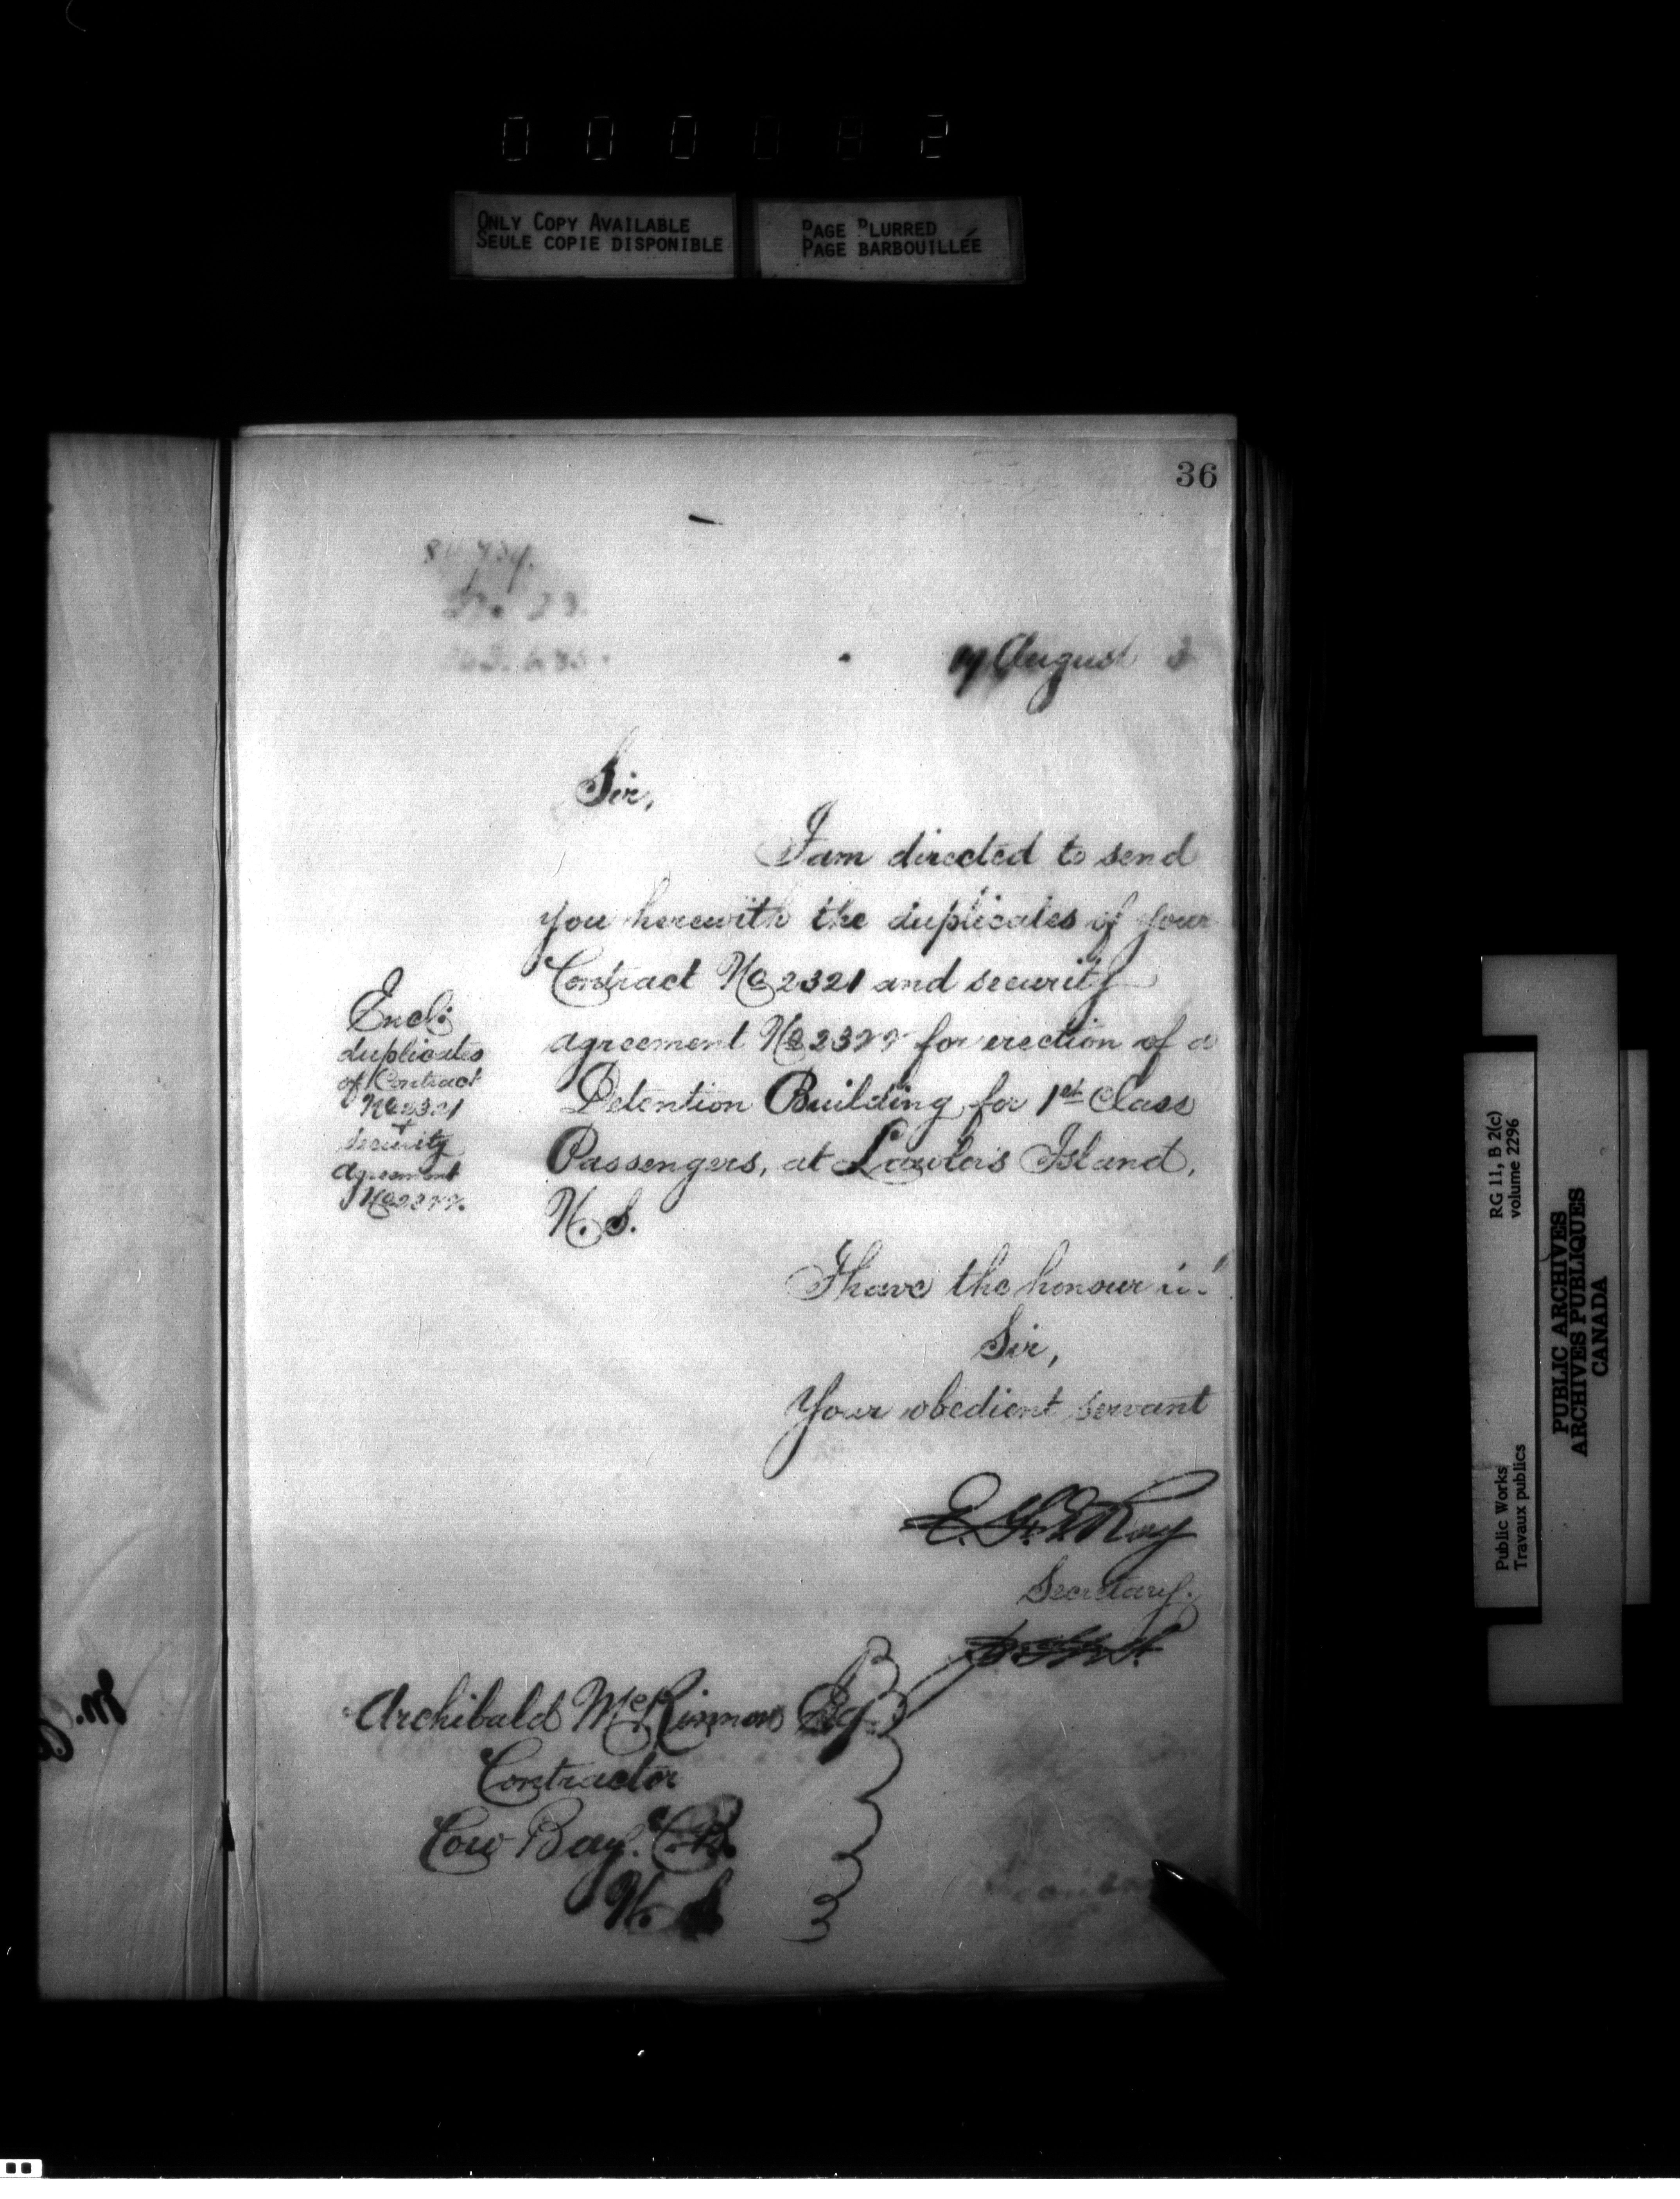 0 0 0 0 8 2
ONLY COPY AVAILABLE
SEULE COPIE DISPONIBLE
PAGE BLURRED
PAGE BARBOUILLÉE
36
August 3
Sir,
I am directed to send
you herewith the duplicates of your
Contract No 2321 and security
agreement No 2322 for erection of a
Detention Building for 1st Class
Passengers, at Lawlor's Island,
N. S.
Encl:
duplicates
of Contract
No 2321
+
Security
Agreement
No 2322.
I have the honour
Sir,
Your obedient servant
Secretary.
Archibald McKinnon Esq
Contractor
Cow Bay. C.B.
N. S.
Public Works
Travaux publics
RG 11, B 2(c)
volume 2296
PUBLIC ARCHIVES
ARCHIVES PUBLIQUES
CANADA